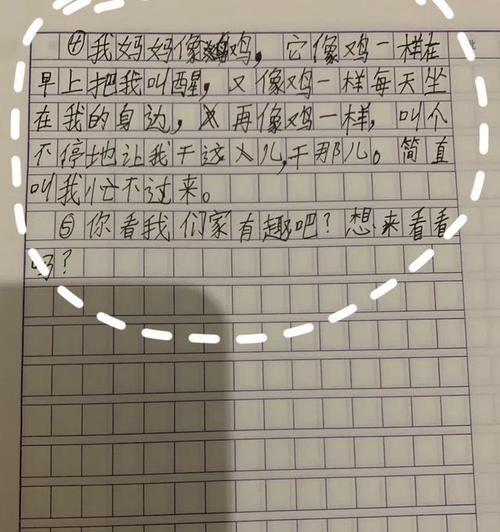 ④我妈妈像鸡,它像鸡一样在
早上把我叫醒,又像鸡一样每天坐
在我的身边,再像鸡一样,叫个
不停地让我干这儿,干那儿。简直
叫我忙不过来。
⑤你看我们家有趣吧?想来看看
吗?